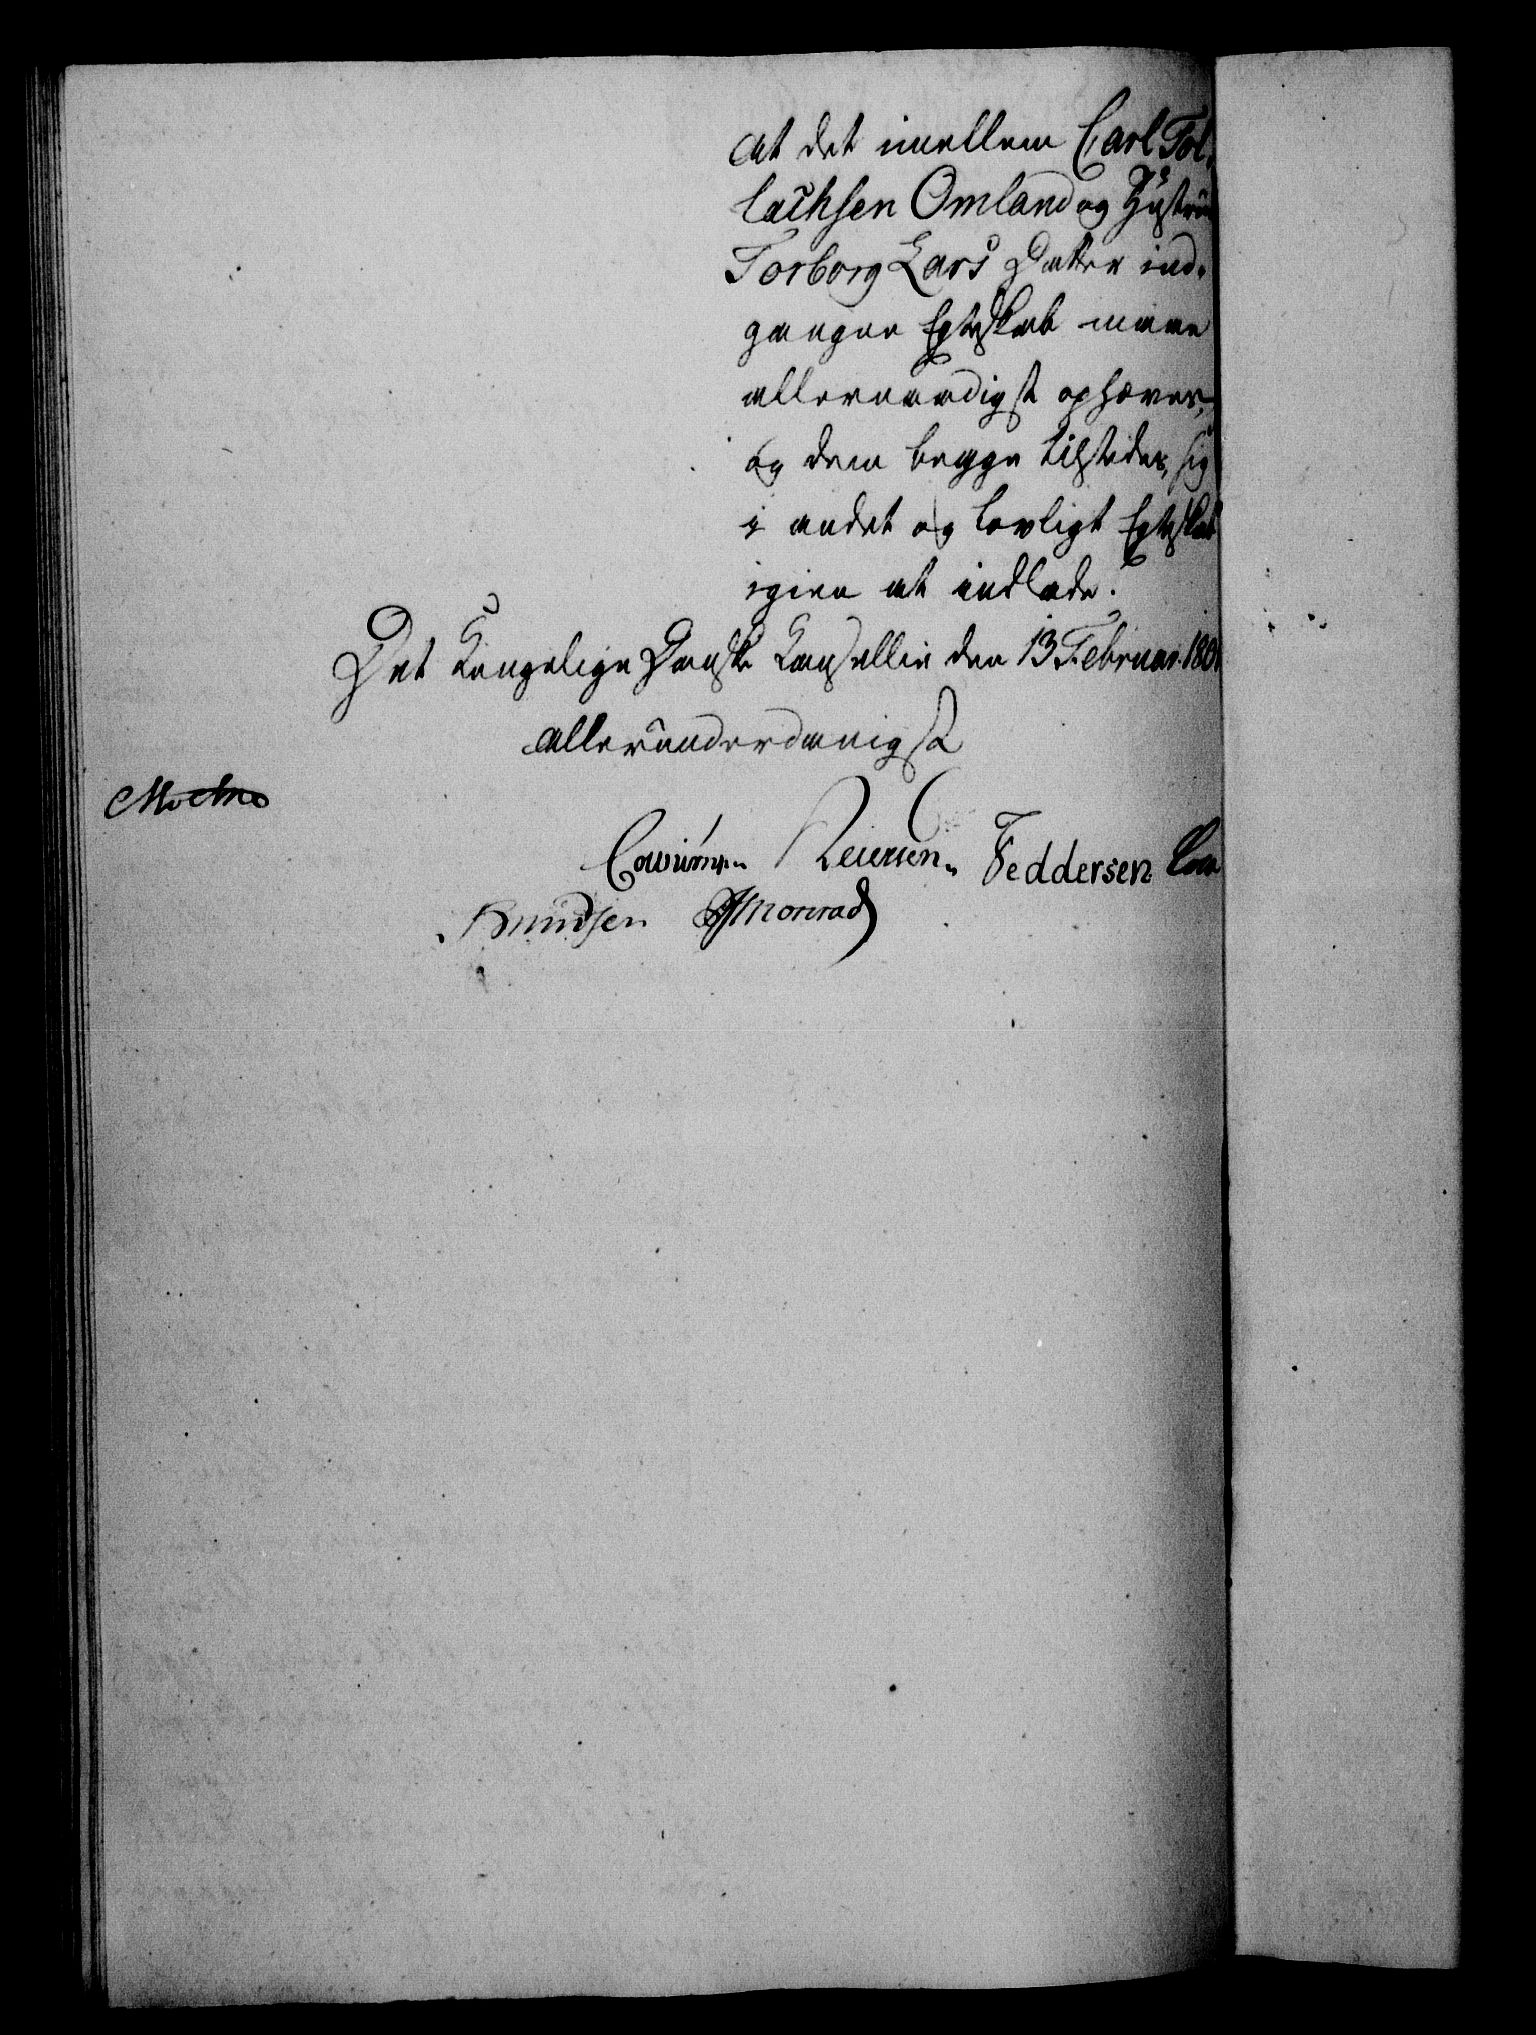 at det imellem Carl Tol-
lachsen Omland og Hustrüe
Torborg Lars Datter ind-
gangne Egteskab maae
allernaadigst ophæves,
og dem begge tilstædes, sig
i andet og lovligt Egteskab
igien at indlade.
Det Kongelige Danske Cancellie den 13 Februar. 1801
alleründerdanigst
Feddersen
Knudsen Monrad